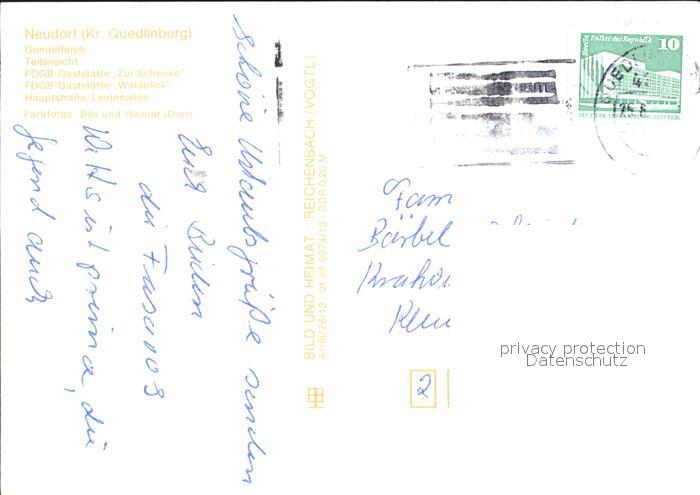 Neudorf (Kr. Quedlinburg)
Gondelteich
Teilansicht
FDGB-Gaststätte „Zur Schenke"
FDGB-Gaststätte „Waldblick"
Hauptstraße, Lindenallee
Farbfotos: Bild und Heimat (Darr)
Schöne Urlaubsgrüße senden
Euch
die
Wetter ist prima, die
Jegend auch
BILD UND HEIMAT · REICHENBACH (VOGTL)
A1/III/26-13 01 08 0374/13 DDR 0,20 M
Berlin Palast der Republik 10
DEUTSCHE DEMOKRATISCHE REPUBLIK
QUEDLIN
Fam
Bärbel
2
privacy protection
Datenschutz